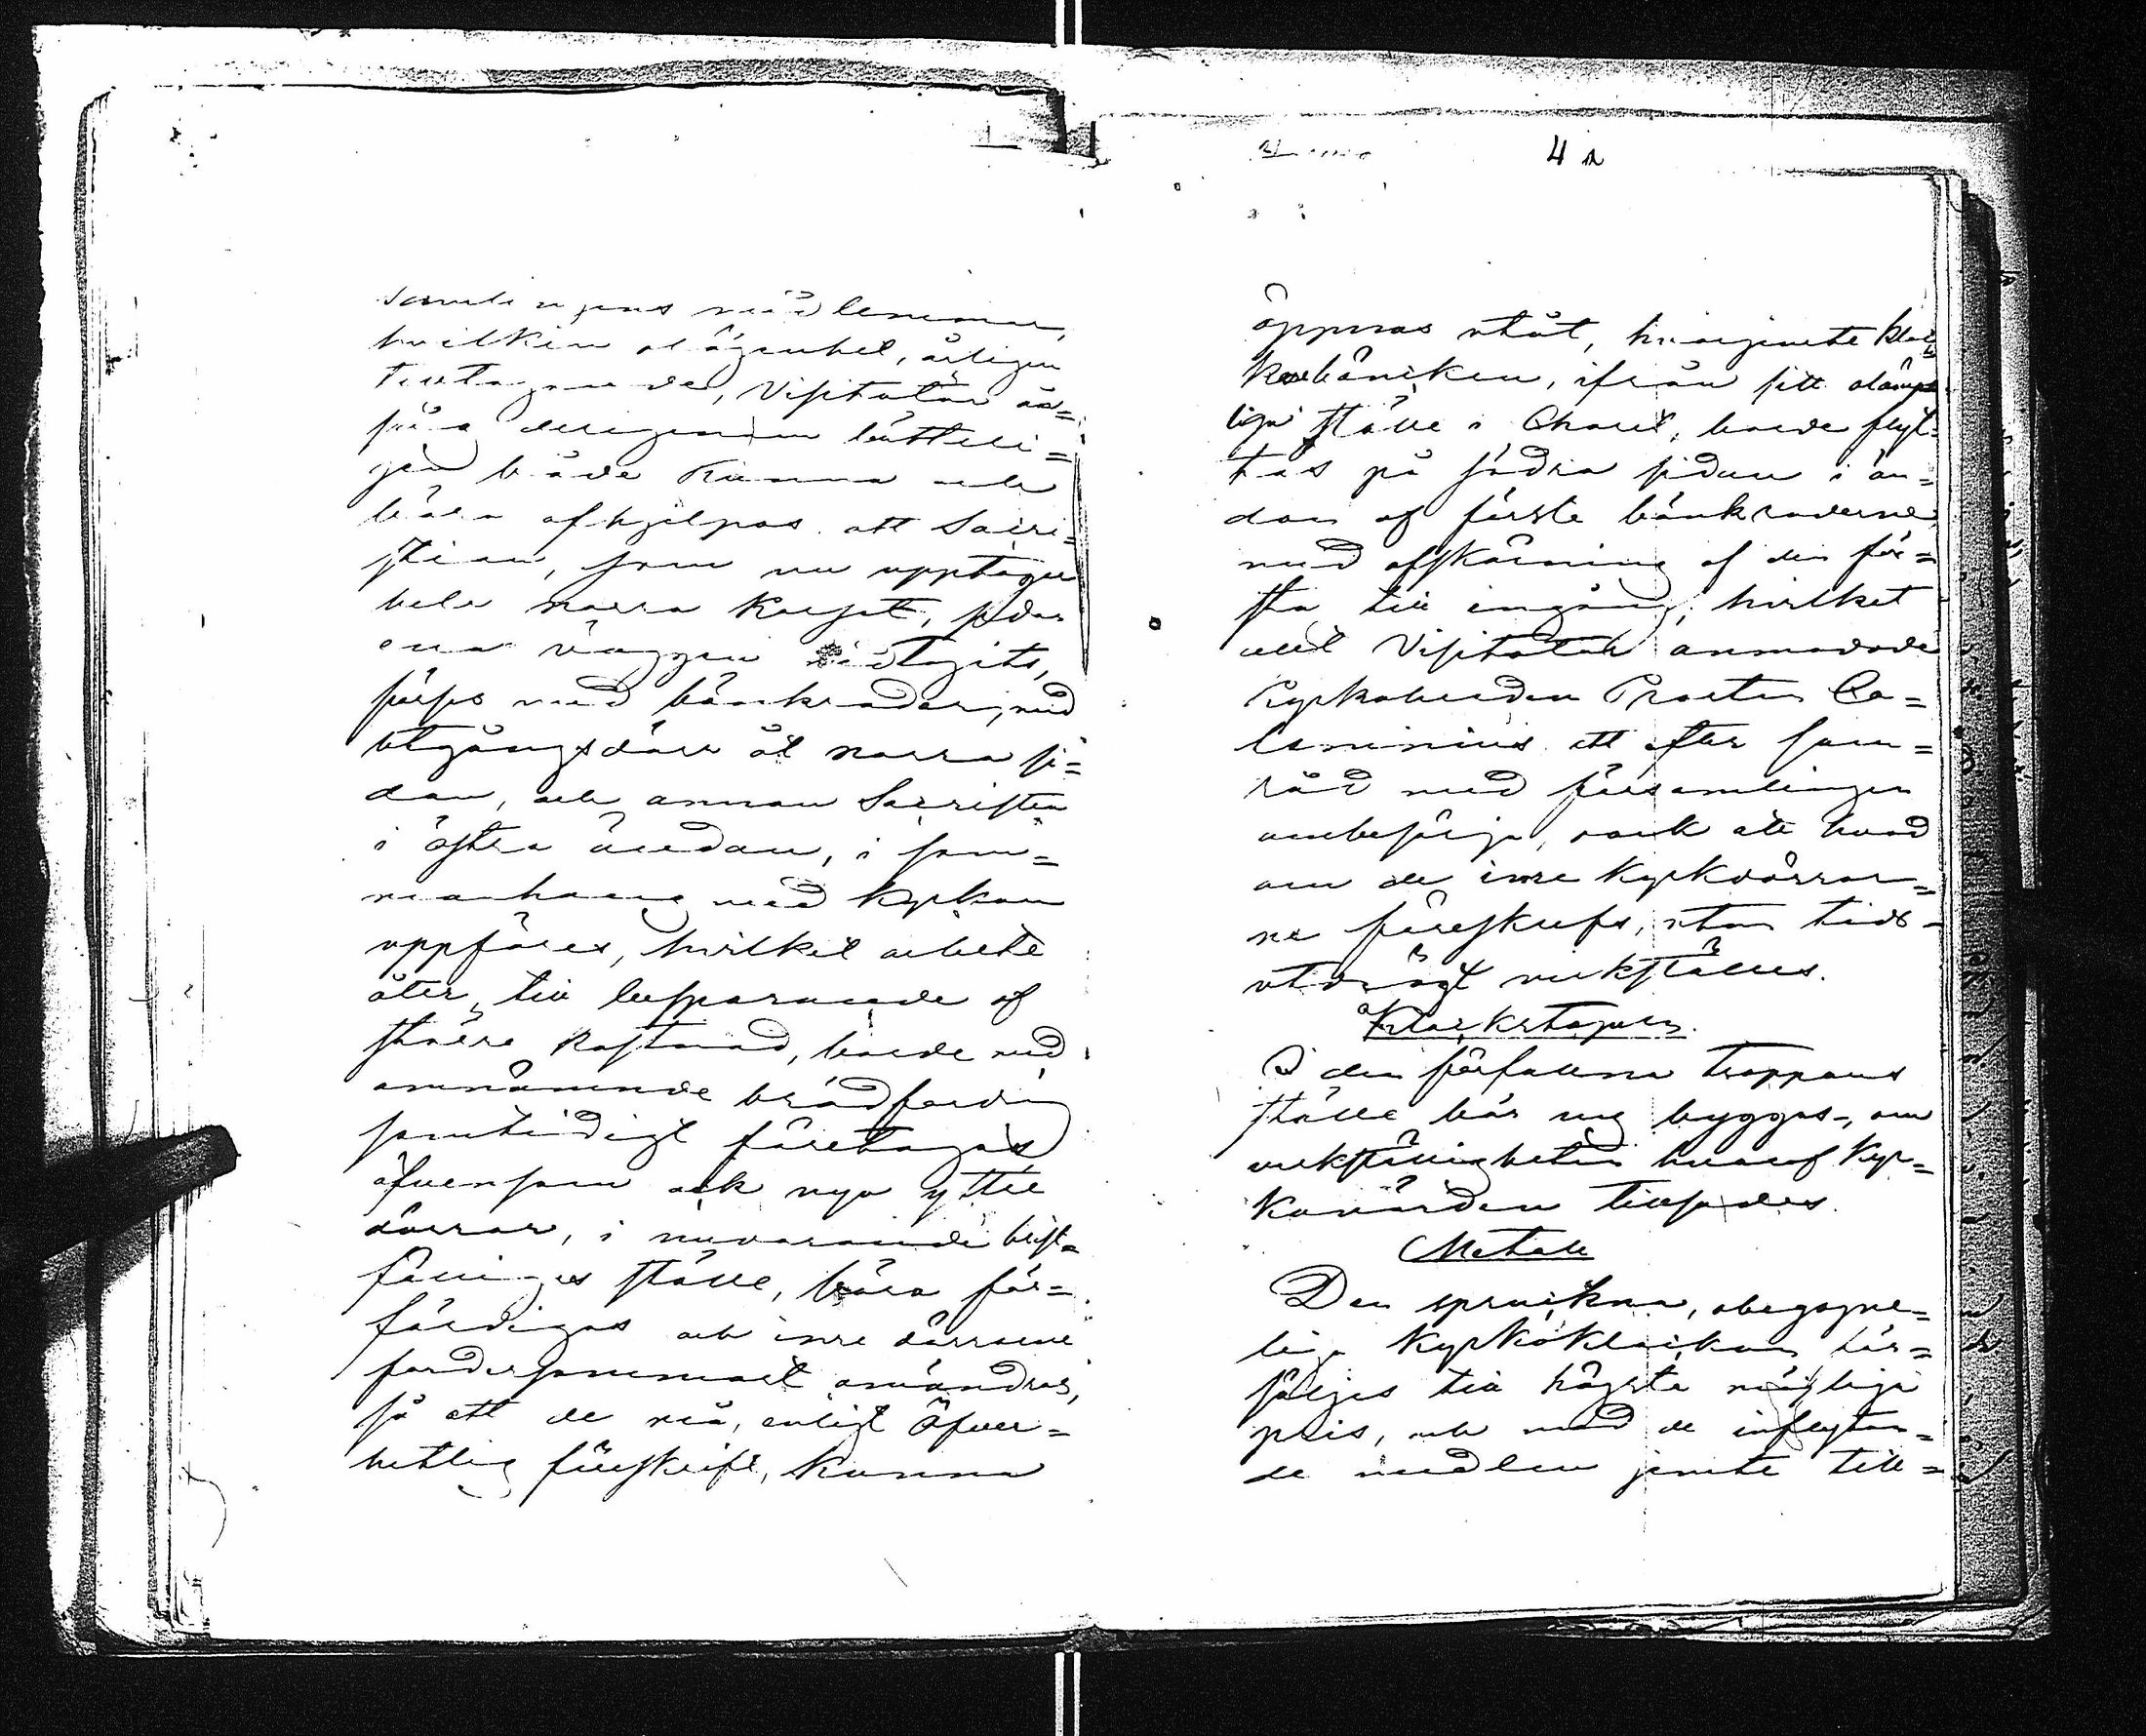 4
samlingens medlemmar,
hvilken olägenhet, årligen
tilltagande, Visitator an=
såg derigenom lätteli=
gen både kunna och
böra afhjelpas att Sacri=
stian, som nu upptager
hela norra korset, sedan
ena väggen
förses med bänkrader, med
utgångsdörr åt norra si=
dan, och annan Sacristia
i östra ändan, i sam=
manhang med kyrkan
uppföres, hvilket arbete
åter, till besparande af
större kostnad, borde med
omnämnde brädfordring
samtidigt företagas
äfvensom ock nya yttre
dörrar, i nuvarande brist=
fälliges ställe, böra för=
färdigas och inre dörrarne
fordersammast omändras,
så att de må, enligt Öfver=
hetlig föreskrift, kunna
öppnas utåt, hvarjemte kloc
karebänken, ifrån sitt olämp
liga ställe i Choret, borde flyt=
tas på södra sidan i än=
dan af förste bänkraderne
med afskärning af den för=
sta till ingång; hvilket
allt Visitator anmodade
Kyrkoherden Prosten Ca=
lamnius att efter sam=
råd med församlingen
ombesörja, samt att hvad
om de inre kyrkdörrar=
ne föreskrifs, utan tids=
utdrägt verkställes.
Klockstapeln.
I den förfallna trappans
ställe bör ny byggas, om
verkställigheten hvaraf Kyr=
kovärden tillsades.
Metall
Den spruckna, obegagne=
liga Kyrkoklockan för=
säljes till högsta möjliga
pris, och med de inflytan=
de medlen jemte till=